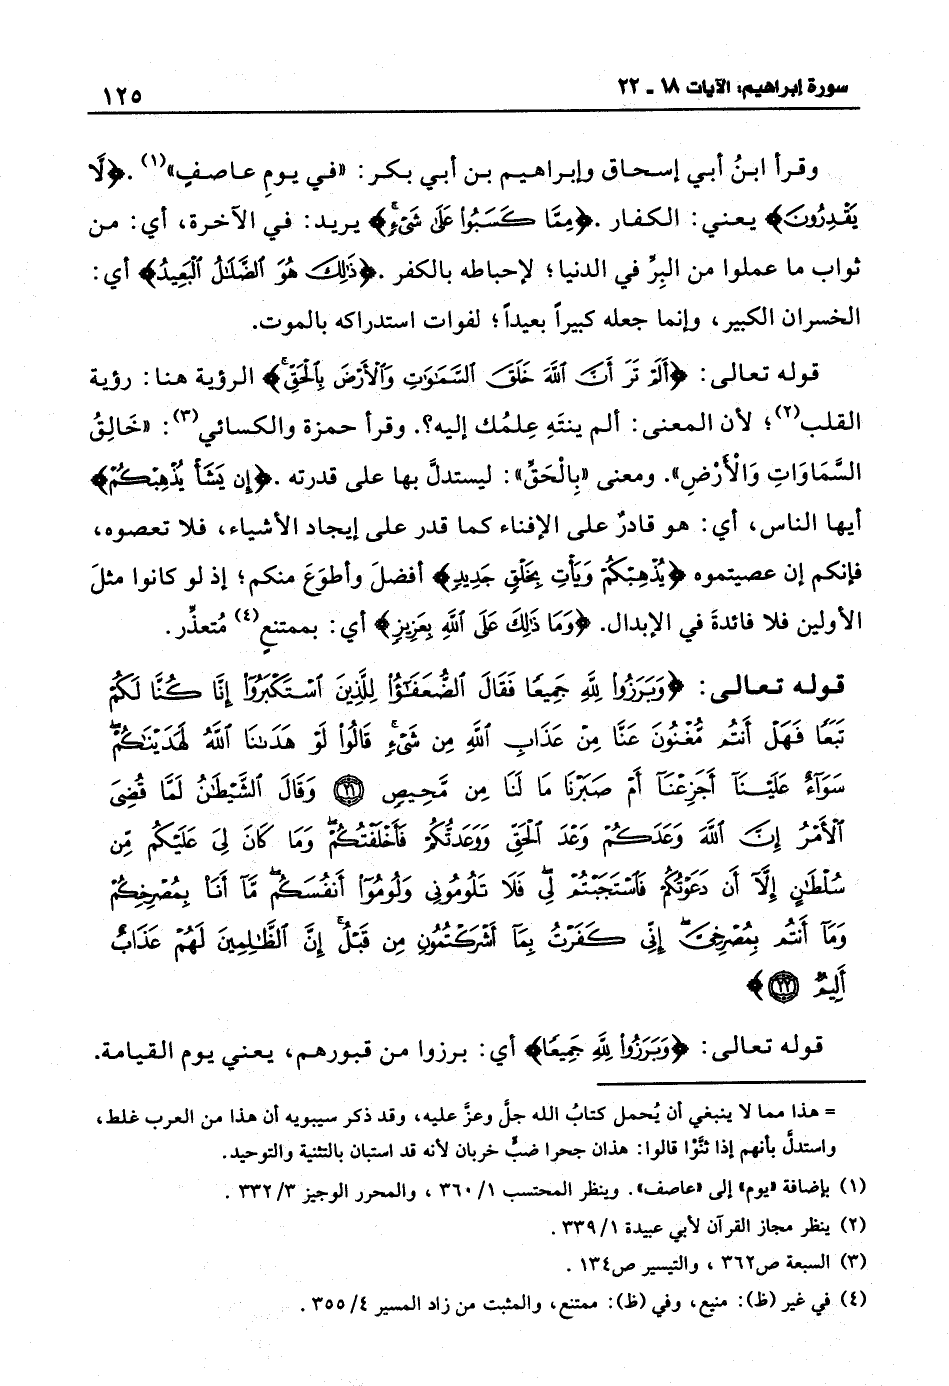 سورة إبراهيم: الآيات ١٨ - ٢٢
١٢٥
وقرأ ابنُ أبي إسحاق وإبراهيم بن أبي بكر: «في يومِ عاصفٍ»(١). ﴿لَّا
يَقْدِرُونَ﴾ يعني: الكفار. ﴿مِمَّا كَسَبُوا۟ عَلَىٰ شَىْءٍ﴾ يريد: في الآخرة، أي: من
ثواب ما عملوا من البِرِّ في الدنيا؛ لإحباطه بالكفر. ﴿ذَٰلِكَ هُوَ ٱلضَّلَـٰلُ ٱلْبَعِيدُ﴾ أي:
الخسران الكبير، وإنما جعله كبيراً بعيداً؛ لفوات استدراكه بالموت.
قوله تعالى: ﴿أَلَمْ تَرَ أَنَّ ٱللَّهَ خَلَقَ ٱلسَّمَـٰوَٰتِ وَٱلْأَرْضَ بِٱلْحَقِّ﴾ الرؤية هنا: رؤية
القلب(٢)؛ لأن المعنى: ألم ينتهِ عِلمُك إليه؟. وقرأ حمزة والكسائي(٣): «خَالِقُ
السَّمَاوَاتِ وَالْأَرْضِ». ومعنى «بِالْحَقِّ»: ليستدلَّ بها على قدرته. ﴿إِن يَشَأْ يُذْهِبْكُمْ﴾
أيها الناس، أي: هو قادرٌ على الإفناء كما قدر على إيجاد الأشياء، فلا تعصوه،
فإنكم إن عصيتموه ﴿يُذْهِبْكُمْ وَيَأْتِ بِخَلْقٍ جَدِيدٍ﴾ أفضلَ وأطوَعَ منكم؛ إذ لو كانوا مثلَ
الأولين فلا فائدةَ في الإبدال. ﴿وَمَا ذَٰلِكَ عَلَى ٱللَّهِ بِعَزِيزٍ﴾ أي: بممتنعٍ(٤) مُتعذِّر.
قوله تعالى: ﴿وَبَرَزُوا۟ لِلَّهِ جَمِيعًا فَقَالَ ٱلضُّعَفَـٰٓؤُا۟ لِلَّذِينَ ٱسْتَكْبَرُوٓا۟ إِنَّا كُنَّا لَكُمْ
تَبَعًا فَهَلْ أَنتُم مُّغْنُونَ عَنَّا مِنْ عَذَابِ ٱللَّهِ مِن شَىْءٍ ۚ قَالُوا۟ لَوْ هَدَىٰنَا ٱللَّهُ لَهَدَيْنَـٰكُمْ ۖ
سَوَآءٌ عَلَيْنَآ أَجَزِعْنَآ أَمْ صَبَرْنَا مَا لَنَا مِن مَّحِيصٍ ٢١ وَقَالَ ٱلشَّيْطَـٰنُ لَمَّا قُضِىَ
ٱلْأَمْرُ إِنَّ ٱللَّهَ وَعَدَكُمْ وَعْدَ ٱلْحَقِّ وَوَعَدتُّكُمْ فَأَخْلَفْتُكُمْ ۖ وَمَا كَانَ لِىَ عَلَيْكُم مِّن
سُلْطَـٰنٍ إِلَّآ أَن دَعَوْتُكُمْ فَٱسْتَجَبْتُمْ لِى ۖ فَلَا تَلُومُونِى وَلُومُوٓا۟ أَنفُسَكُم ۖ مَّآ أَنَا۠ بِمُصْرِخِكُمْ
وَمَآ أَنتُم بِمُصْرِخِىَّ ۖ إِنِّى كَفَرْتُ بِمَآ أَشْرَكْتُمُونِ مِن قَبْلُ ۗ إِنَّ ٱلظَّـٰلِمِينَ لَهُمْ عَذَابٌ
أَلِيمٌ ٢٢﴾
قوله تعالى: ﴿وَبَرَزُوا۟ لِلَّهِ جَمِيعًا﴾ أي: برزوا من قبورهم، يعني يوم القيامة.
= هذا مما لا ينبغي أن يُحمل كتابُ الله جلَّ وعزَّ عليه، وقد ذكر سيبويه أن هذا من العرب غلط،
واستدلَّ بأنهم إذا ثنَّوْا قالوا: هذان جحرا ضبٍّ خربان لأنه قد استبان بالتثنية والتوحيد.
(١) بإضافة «يوم» إلى «عاصف». وينظر المحتسب ١/ ٣٦٠، والمحرر الوجيز ٣/ ٣٣٢.
(٢) ينظر مجاز القرآن لأبي عبيدة ١/ ٣٣٩.
(٣) السبعة ص٣٦٢، والتيسير ص١٣٤.
(٤) في غير (ظ): منيع، وفي (ظ): ممتنع، والمثبت من زاد المسير ٤/ ٣٥٥.